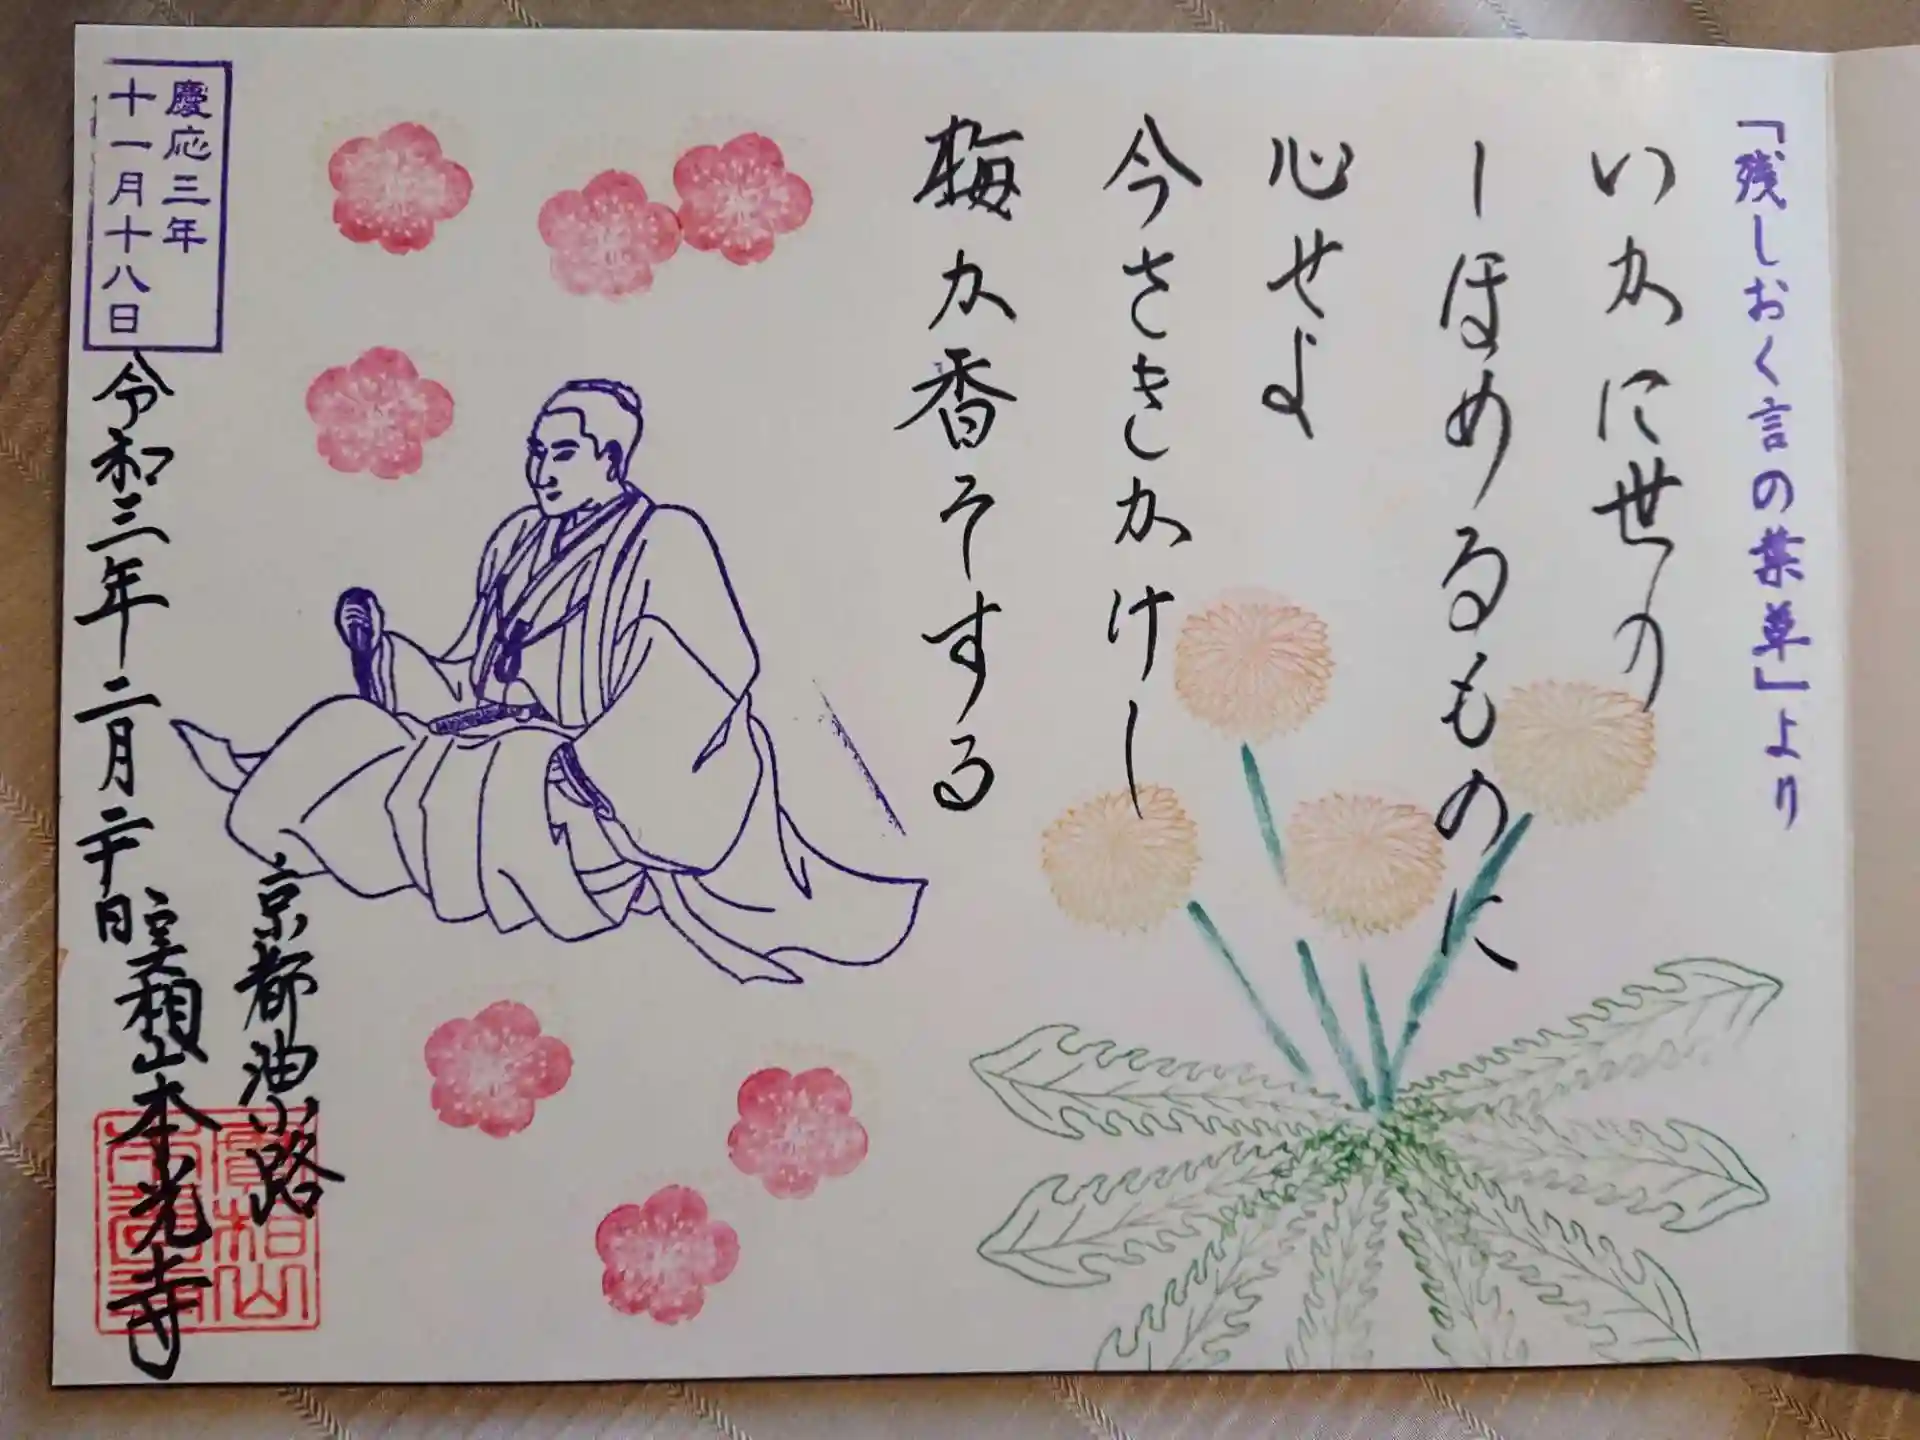 「残しおく言の葉草」より
いかに世の
しほめるものに
心せよ
今さきかけし
梅か香そする
慶応三年
十一月十八日
京都油小路
令和三年二月二十日
実相山本光寺